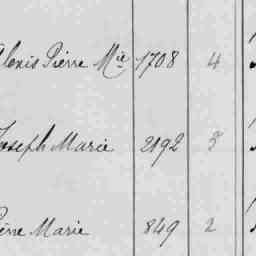 Alexis Pierre Mie 1708 4
Joseph Marie 2192 3
Marie 849 2